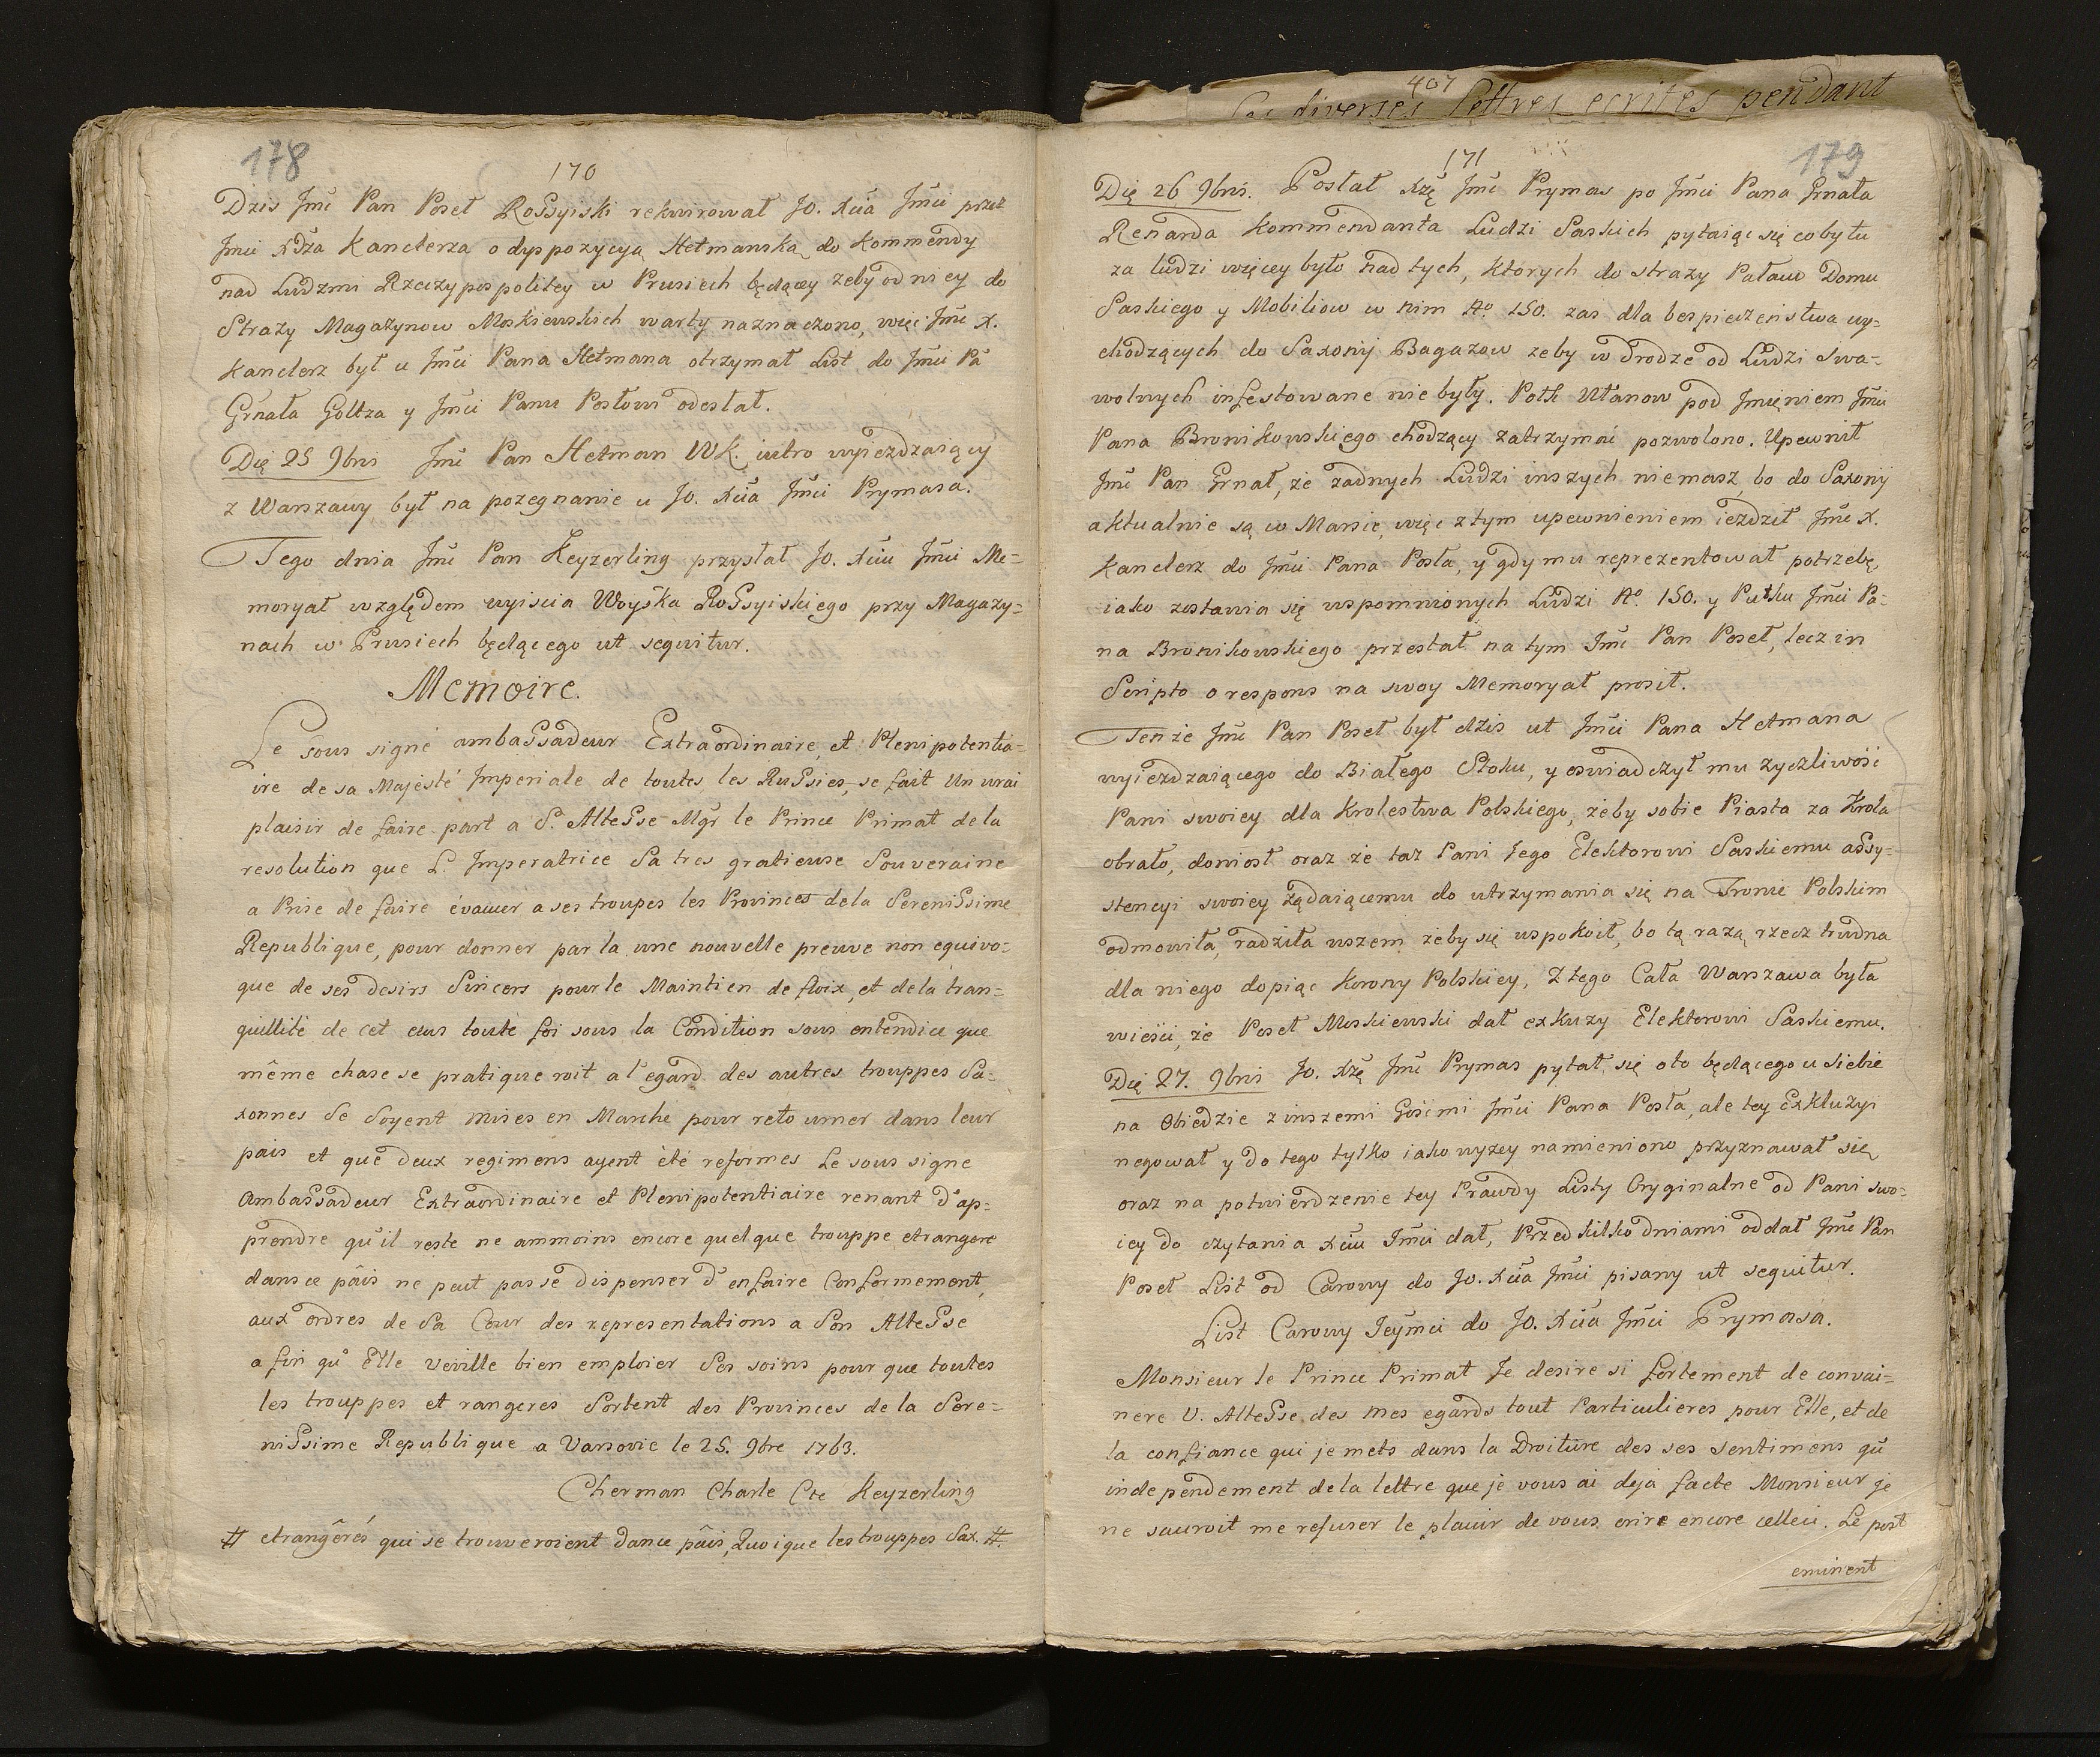 178
170
Dzis Jmć Pan Poseł Rossyiski rekwirował Jo. Xcia Jmci przez
Jmci Xdza Kanclerza o dyspozycyą Hetmanską do Kommendy
nad Ludzmi Rzeczypospolitey w Prusiech będącey zeby od niey do
Strazy Magazynow Moskiewskich warty naznaczono, więc Jmć X.
Kanclerz był u Jmci Pana Hetmana otrzymał List do Jmci Pa
Grnała Goltza y Jmci Panu Posłowi odesłał.
Dię 25 9bris Jmć Pan Hetman WK. iutro wyiezdzaiący
z Warszawy był na pozegnanie u Jo. Xcia Jmci Prymasa.
Tego dnia Jmć Pan Keyzerling przysłał Jo. Xciu Jmci Me=
moryał względem wyiscia Woyska Rossyiskiego przy Magazy=
nach w Prusiech będącego ut sequitur.
Memoire.
Le sous signé ambassadeur Extraordinaire et Plenipotentia=
ire de sa Majesté Imperiale de toutes les Russies, se fait Un vrai
plaisir de faire part a S. Altesse Mgr le Prince Primat de la
resolution que L. Imperatrice Sa tres gratieuse Souveraine
a Prise de faire évacuer a ses troupes les Provinces de la Serenissime
Republique, pour donner par la une nouvelle preuve non equivo=
que de ses desirs Sincers pour le Maintien de floix, et de la tran=
quillité de cet etus toute foi sous la Condition sous entendue que
même chase se pratique roit a l'egard des autres trouppes Sa=
xonnes Se Soyent mises en Marche pour reto urner dans leur
païs et que deux regimens ayent été reformes Le sous signe
Ambassadeur Extraordinaire et Plenipotentiaire renant d'ap=
prendre qu'il reste ne ammoins encore quelque trouppe etrangere
dans ce païs ne peut pas se dispenser d'en faire Conformement,
aux ordres de Sa Cour des representations a Son Altesse
a fin qu' Elle veuille bien emploier Ses soins pour que toutes
les trouppes et rangeres Sortent des Provinces de la Sere=
nissime Republique a Varsovie le 25. 9bre 1763.
Cherman Charle Cte Keyzerling
# etrangêrés qui se trouveroient dance païs, Quoique les trouppes Sax. #.
407
les diverses lettres ecrites pendant
171
179
Dię 26 9bris. Posłał Xżę Jmć Prymas po Jmci Pana Grnała
Renarda Kommendanta Ludzi Saskich pytaiąc się coby tu
za ludzi więcey było nad tych, ktorych do strazy Pałacu Domu
Saskiego y Mobiliow w nim No. 150. zas dla bespieczenstwa wy=
chodzących do Saxonij Bagazow zeby w drodze od Ludzi Swa=
wolnych infestowane nie były. Połk Ułanow pod Jmięniem Jmci
Pana Bronikowskiego chodzący zatrzymać pozwolono. Upewnił
Jmć Pan Grnał, że zadnych Ludzi inszych niemasz, bo do Saxonij
aktualnie są w Marsie, więc z tym upewnieniem iezdził Jmć X.
Kanclerz do Jmci Pana Posła, y gdy mu reprezentował potrzebę
iako zostania się wspomnionych Ludzi No. 150. y Pułku Jmci Pa=
na Bronikowskiego przestał na tym Jmć Pan Poseł, lecz in
Scripto o respons na swoy Memoryał prosił.
Tenże Jmć Pan Poseł był dzis ut Jmci Pana Hetmana
wyiezdzaiącego do Białego Stoku, y oswiadczył mu zyczliwość
Pani swoiey dla Krolestwa Polskiego, żeby sobie Piasta za Krola
obrało, doniosł oraz że taz Pani tego Elektorowi Saskiemu assy=
stencyi swoiey żądaiącemu do utrzymania się na Tronie Polskim
odmowiła, radziła wszem żeby się uspokoił, bo tą razą rzecz trudna
dla niego dopiąc Korony Polskiey, Z tego Cała Warszawa była
wieści, że Poseł Moskiewski dał exkuzy Elektorowi Saskiemu.
Dię 27. 9bris Jo. Xżę Jmć Prymas pytał się oto będącego u Siebie
na Obiedzie z inszemi Gośćmi Jmci Pana Posła, ale tey Exkluzyi
negował y do tego tylko iako wyzey namieniono przyznawał się,
oraz na potwierdzenie tey Prawdy Listy Oryginalne od Pani swo=
iey do czytania Xciu Jmci dał, Przed kilko dniami oddał Jmć Pan
Poseł List od Carowy do Jo. Xcia Jmci pisany ut sequitur.
List Carowy Jeymci do Jo. Xcia Jmci Prymasa.
Monsieur le Prince Primat Je desire si fortement de convai=
nere V. Altesse des mes egards tout Particulieres pour Elle, et de
la confiance qui je mets dans la Droiture des ses sentimens qu
independement de la lettre que je vous ai deja facte Monsieur je
ne sauroit me refuser le plaisir de vous erire encore celleci. Le post
eminent